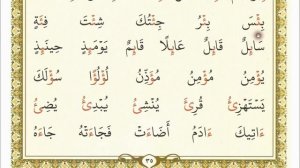 بِئْسَ بِئْرُ جِئْتُكَ شِئْتَ فِئَةٍ
سَآىِٕلٌ قَآىِٕلٌ عَآىِٕلًا قَآىِٕمٌ يَوْمَىِٕذٍ حِينَىِٕذٍ
يُؤْمِنُ مُؤْمِنٌ مُؤَذِّنٌ لُؤْلُؤًا سُؤْلَكَ
يَسْتَهْزِئُ قُرِئَ يُنْشِئُ يُبْدِئُ يُضِيْٓءُ
ءَاتِيكَ ءَادَمُ أَضَآءَتْ فَجَآءَتْهُ جَآءَهُ
٣٥